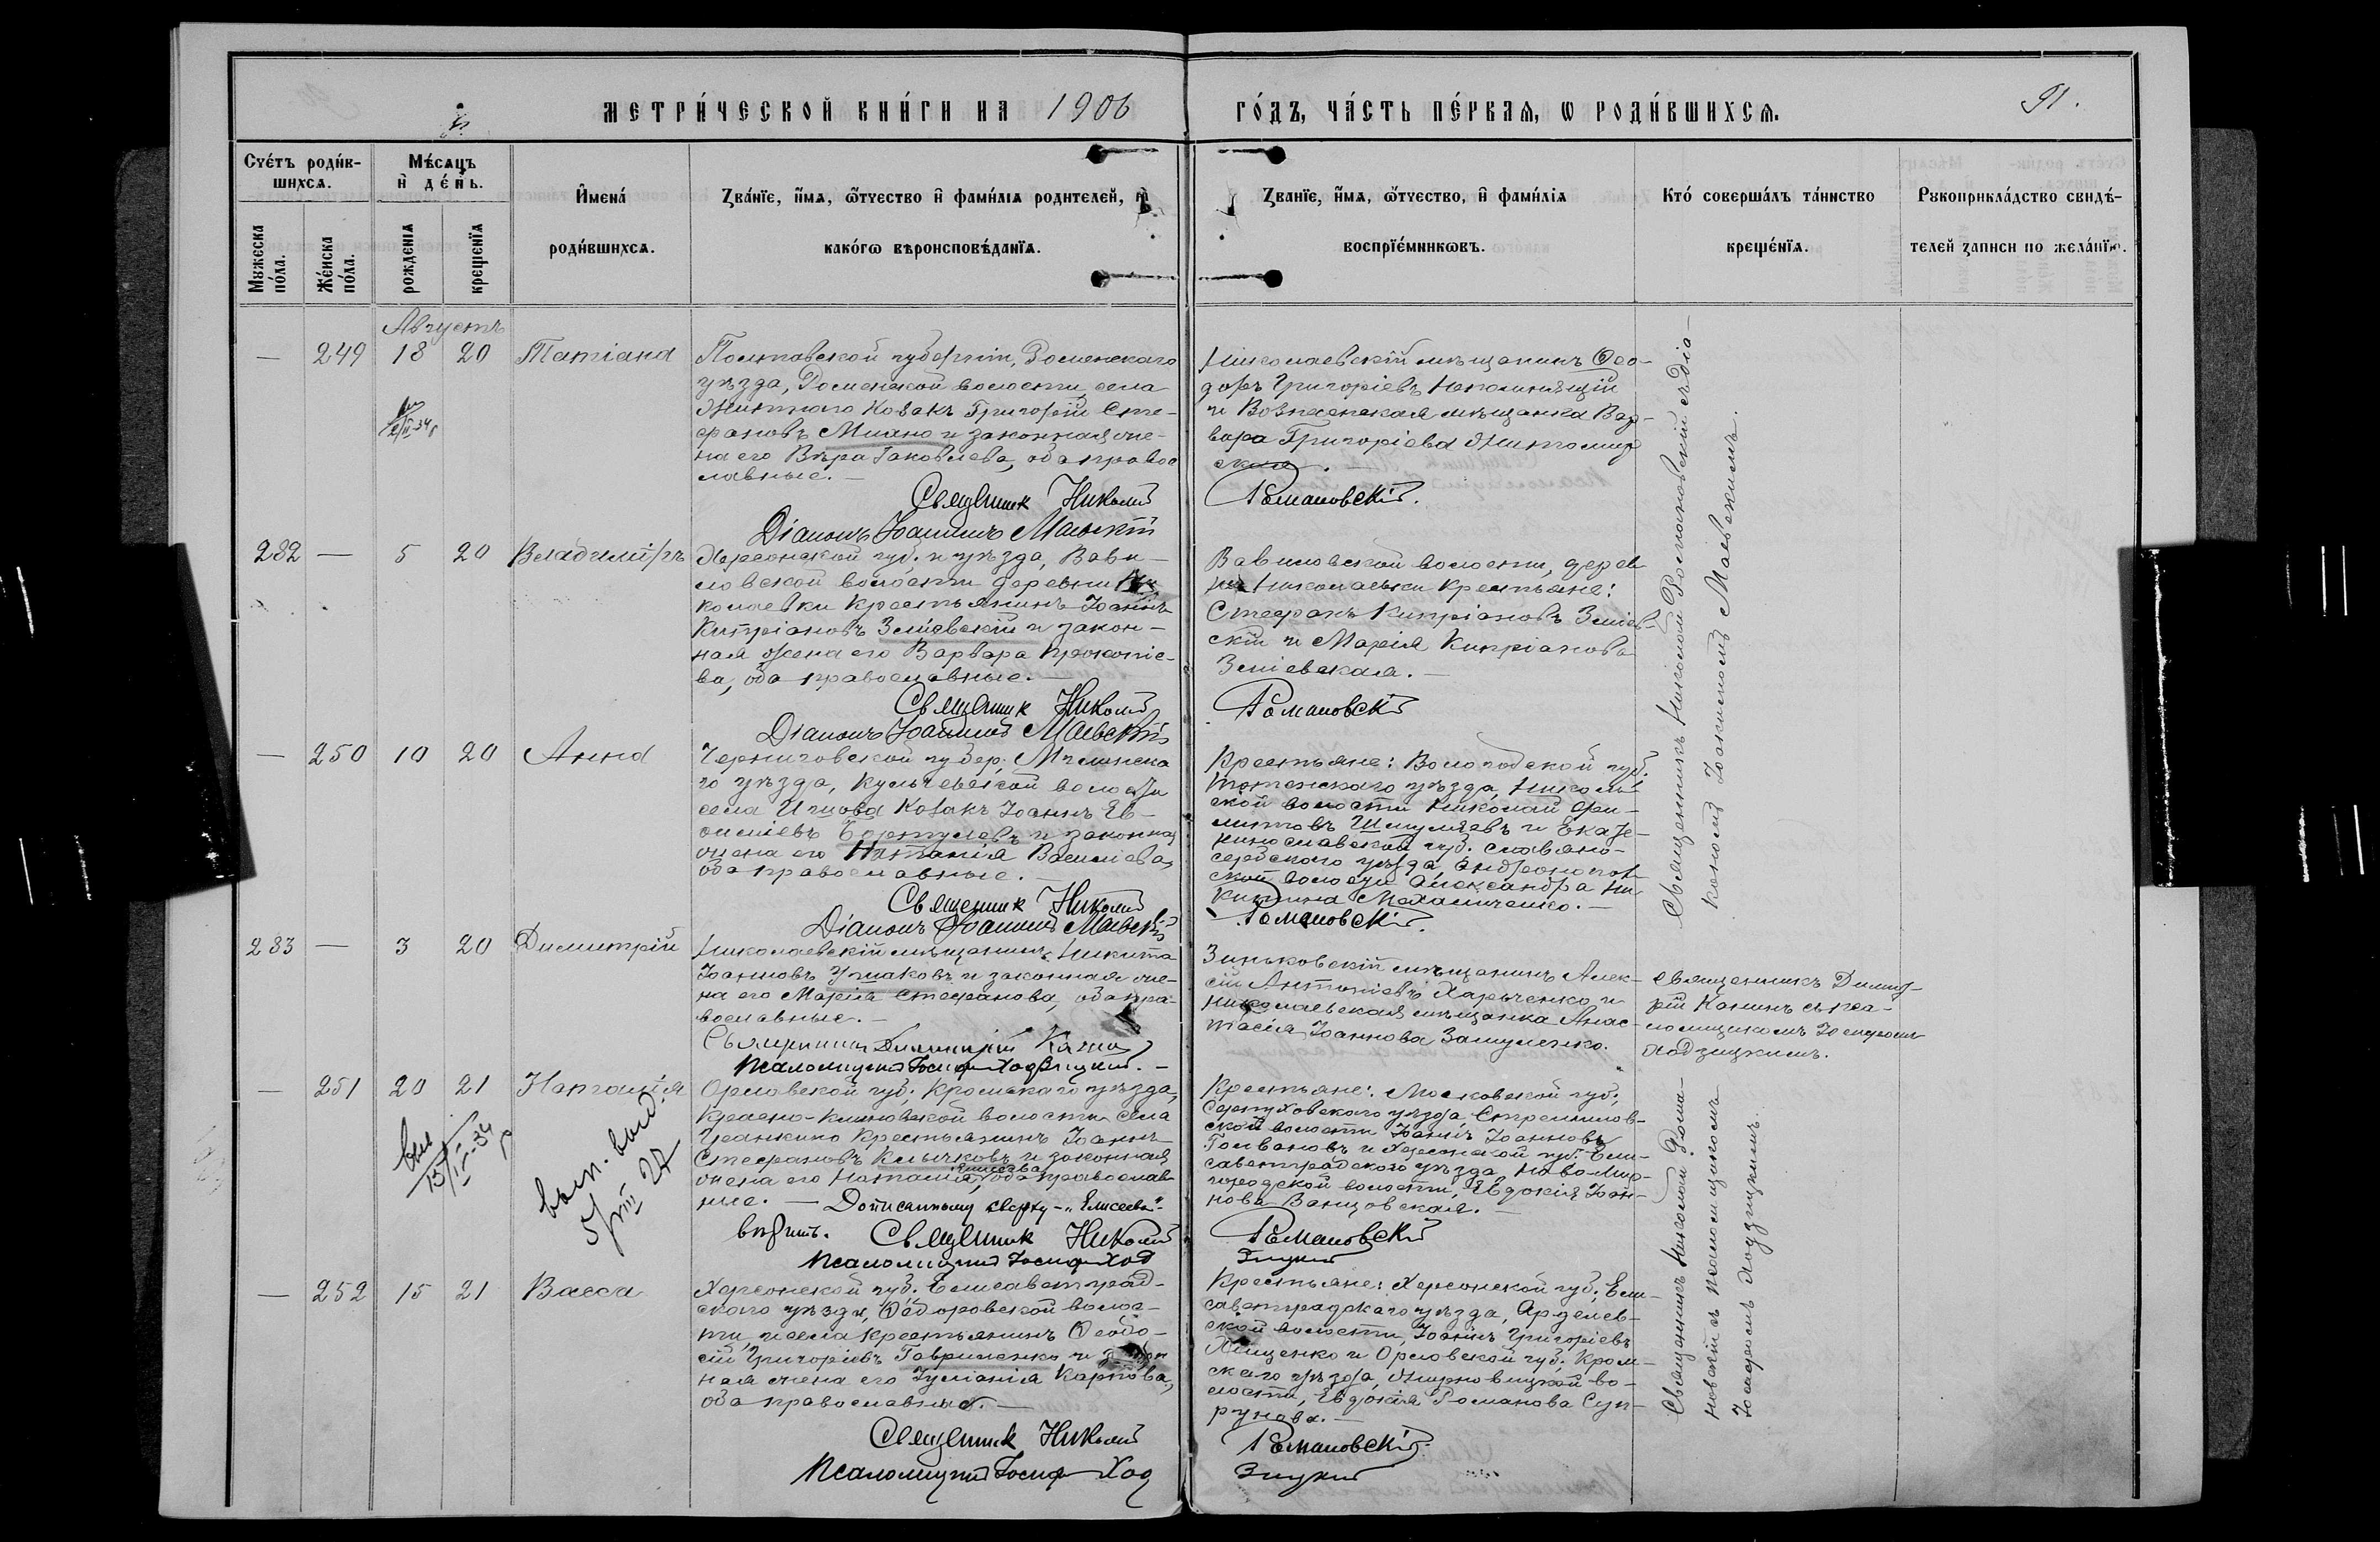 МЕТРИ́ЧЕСКОЙ КНИ́ГИ НА 1906 ГО́ДЪ, ЧА́СТЬ ПЕ́РВАЯ, Ѡ РОДИ́ВШИХСЯ.
91.
Сче́тъ роди́в-
шихся.
Мужеска по́ла.
Же́нска по́ла.
Мѣ́сяцъ
и де́нь.
рожденія
крещенїя
Имена́
роди́вшихся.
Зва́нїе, и́мя, ѻ́тчество и фами́лїя родителей, и
како́гѡ вѣроисповѣ́данїя.
Зва́нїе, и́мя, ѻ́тчество, и фами́лїя
воспрїе́мниковъ.
Кто́ соверша́лъ та́инство
креще́нїя.
Рукоприкла́дство свидѣ́-
телей записи по жела́нїю.
Августъ
— 249 18 20 Татіана
Полтавской губерніи, Роменскаго
уѣзда, Роменской волости, села
Житнаго Козакъ Григорій Сте-
фановъ Миано и законная же-
на его Вѣра Іаковлева, оба право-
славные. —
Священник Николай
Діаконъ Іоанникій Маевскій
Николаевскій мѣщанинъ Ѳео-
доръ Григоріевъ Непомнящій
и Вознесенская мѣщанка Вар-
вара Григоріева Житомир
ская. —
Романовскій.
Священникъ Николай Романовскій съ діа-
кономъ Іоанникіемъ Маевскимъ.
282 — 5 20 Владиміръ
Херсонской губ. и уѣзда, Вави-
ловской волости деревни Ни
колаевки Крестьянинъ Іоаннъ
Кипріановъ Зміевскій и закон-
ная жена его Варвара Прокопіе-
ва, оба православные. —
Священник Николай
Діаконъ Іоанникій Маевскій
Вавиловской волости, дерев
ни Николаевки Крестьяне:
Стефанъ Кипріановъ Зміев-
скій и Марія Кипріанова
Зміевская. —
Романовскій
— 250 10 20 Анна
Черниговской губер. Мглинска
го уѣзда, Кульчевской волости
села Ишова Козакъ Іоаннъ Ев-
фиміевъ Бортулевъ и законная
жена его Наталія Василіева,
оба православные. —
Священник Николай
Діаконъ Іоанникій Маевскій
Крестьяне: Вологодской губ.
Тотемскаго уѣзда, Николь
ской волости Николай Фи-
липповъ Шмуляевъ и Екате-
ринославской губ. Славяно-
сербскаго уѣзда, Андреанопол
ской волости Александра Ни-
китина Механиченко. —
Романовскій.
283 — 3 20 Димитрій
Николаевскій мѣщанинъ Никита
Іоанновъ Ушаковъ и законная же-
на его Марія Стефанова, оба пра-
вославные. —
Священникъ Димитрій Канин
Псаломщикъ Іосифъ Ходзицкій. —
Зиньковскій мѣщанинъ Алек-
сій Антоніевъ Харченко и
Николаевская мѣщанка Анас-
тасія Іоаннова Замуленко.
Священникъ Димит-
рій Канинъ съ пса-
ломщикомъ Іосифомъ
Ходзицкимъ.
— 251 20 21 Наталія
Орловской губ. Кромскаго уѣзда,
Волости села
Крестьянинъ Іоаннъ
Стефановъ Клычковъ и законная
Елисеева
жена его Наталія, оба православ-
ные. — Дописанному сверху — „Елисеева"
вѣрить. Священник Николай
Псаломщикъ Іосифъ Ход
Крестьяне: Московской губ.
Серпуховскаго уѣзда, Стремилов-
ской волости Іоаннъ Іоанновъ
Голвановъ и Херсонской губ. Ели-
саветградскаго уѣзда, Ново-Мир-
городской волости, Евдокія Іоан-
нова Ванцовская. —
Романовскій
зицкій
Священникъ Николай Рома-
новскій съ псаломщикомъ
Іосифомъ Ходзицкимъ.
— 252 15 21 Васса
Херсонской губ. Елисаветград-
скаго уѣзда, Ѳедоровской волос-
ти, и села Крестьянинъ Ѳеодо-
сій Григоріевъ Гавриленко и закон
ная жена его Іуліанія Карпова,
оба православные. —
Священник Николай
Псаломщикъ Іосифъ Ход
Крестьяне: Херсонской губ. Ели-
саветградскаго уѣзда, Арделев-
ской волости Іоаннъ Григоріевъ
Хищенко и Орловской губ. Кром-
скаго уѣзда, Жирновицкой во-
лости, Евдокія Романова Суп-
рунова. —
Романовскій.
зицкій